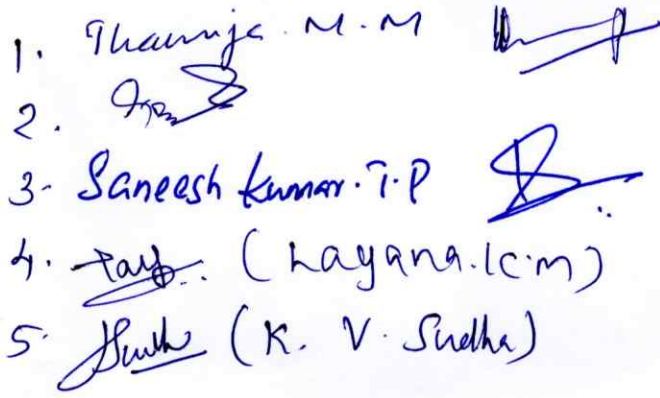 1. Thanuja. M. M
2.
3. Saneesh Kumar. T. P
4. (Layana. K. M)
5. (K. V. Sudha)